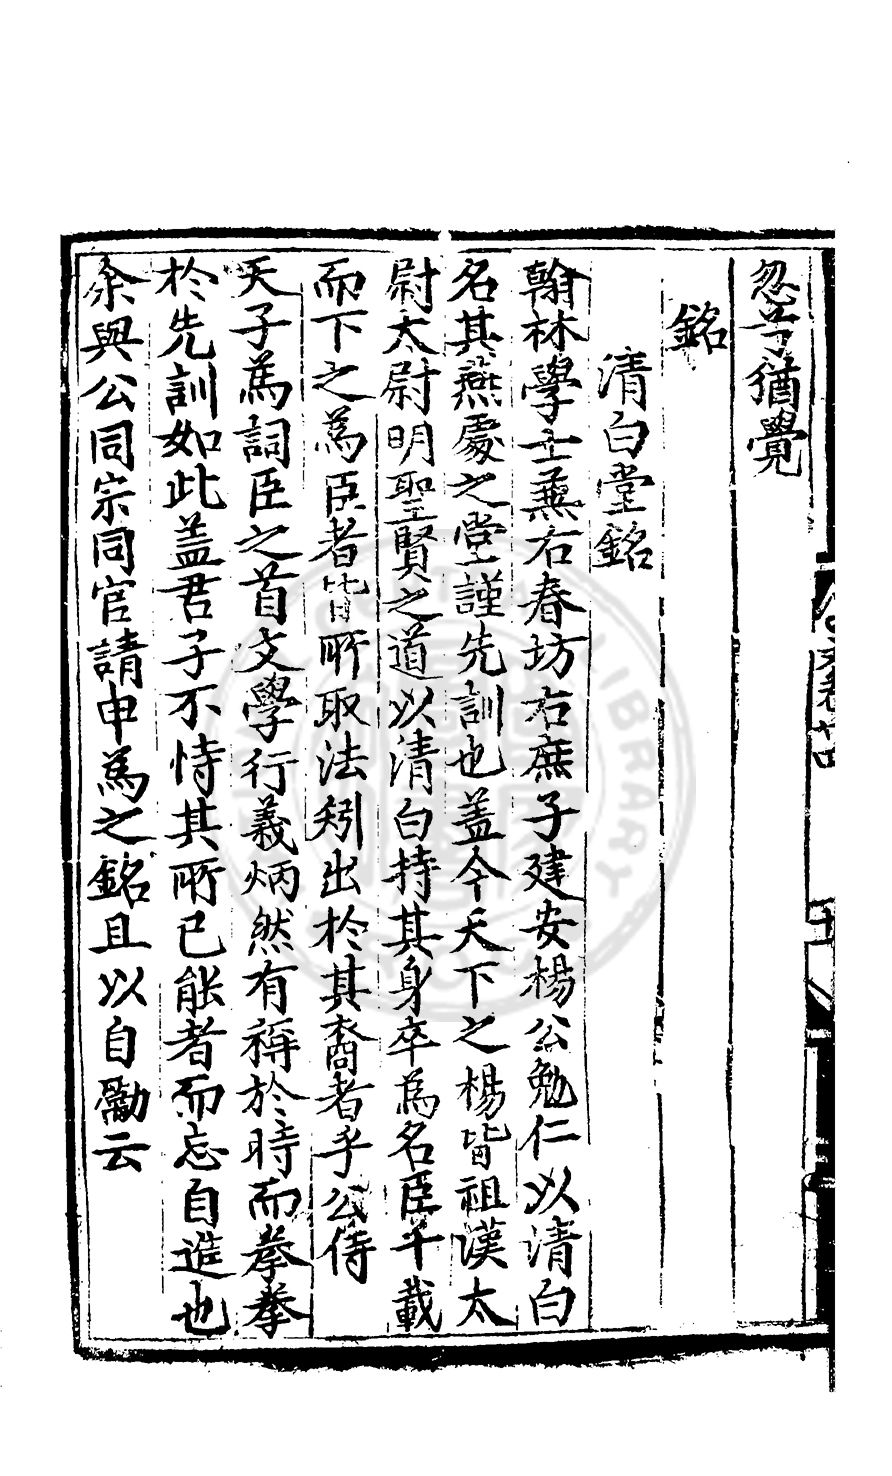 忽兮猶覺
銘
清白堂銘
翰林學士蕪右春坊右庶子建安楊公勉仁以清白
名其燕處之堂謹先訓也葢今天下之楊皆祖漢太
尉太尉明聖賢之道以清白持其身卒為名臣千載
而下之為臣者皆所取法矧出於其裔者乎公侍
天子為詞臣之首文學行義炳然有稱於時而拳拳
於先訓如此盖君子不恃其所已能者而忘自進也
余與公同宗同官請申為之銘且以自勵云